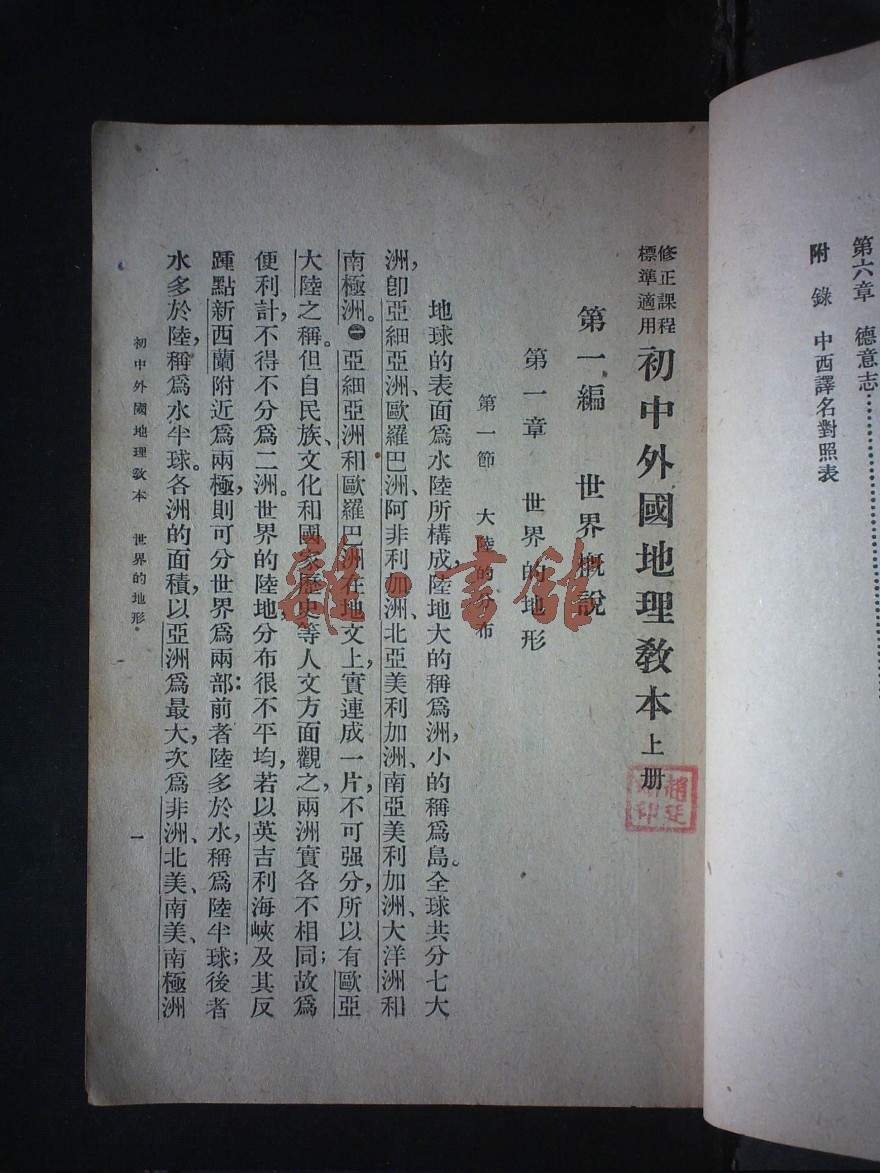 第六章　德意志…………
附　錄　中西譯名對照表
修正課程
標準適用
初中外國地理教本上册
第一編　世界概說
第一章　世界的地形
第一節　大陸的分布
地球的表面爲水陸所構成，陸地大的稱爲洲，小的稱爲島。全球共分七大
洲，卽亞細亞洲、歐羅巴洲、阿非利加洲、北亞美利加洲、南亞美利加洲、大洋洲和
南極洲。㊀亞細亞洲和歐羅巴洲在地文上，實連成一片，不可强分，所以有歐亞
大陸之稱。但自民族、文化和國家歷史等人文方面觀之，兩洲實各不相同；故爲
便利計，不得不分爲二洲。世界的陸地分布很不平均，若以英吉利海峽及其反
踵點新西蘭附近爲兩極，則可分世界爲兩部：前者陸多於水，稱爲陸半球；後者
水多於陸，稱爲水半球。各洲的面積，以亞洲爲最大，次爲非洲、北美、南美、南極洲
初中外國地理教本　世界的地形
一
書館
趙
印